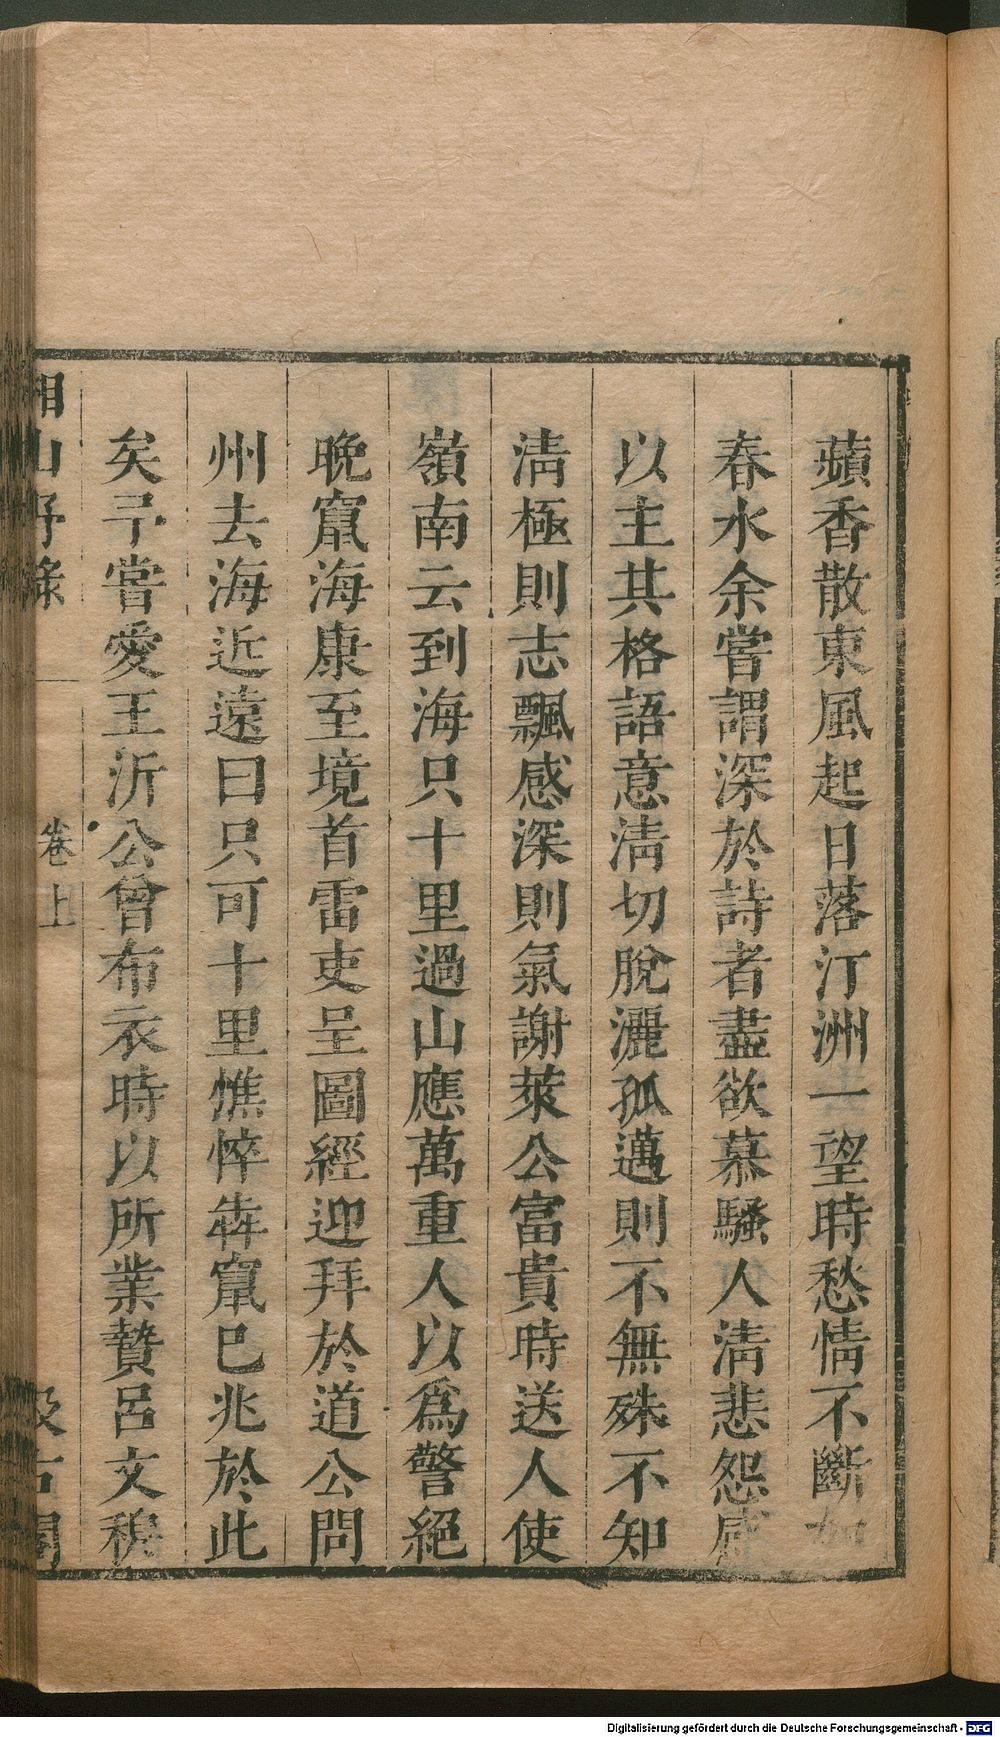 蘋香散東風起日落汀洲一望時愁情不斷如
春水余嘗謂深於詩者盡欲慕騷人清悲怨感
以主其格語意清切脫灑孤邁則不無殊不知
清極則志飄感深則氣謝萊公富貴時送人使
嶺南云到海只十里過山應萬重人以爲警絕
晚竄海康至境首雷吏呈圖經迎拜於道公問
州去海近遠曰只可十里憔悴犇竄已兆於此
矣予嘗愛王沂公曾布衣時以所業贄呂文穆
湘山野錄
卷上
汲古閣
Digitalisierung gefördert durch die Deutsche Forschungsgemeinschaft - DFG